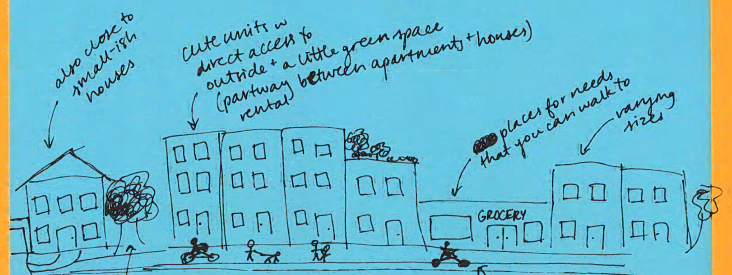 also close to
small-ish
houses
cute units w
direct access to
outside + a little green space
(partway between apartments + houses)
rental
places for needs
that you can walk to
varying
sizes
GROCERY